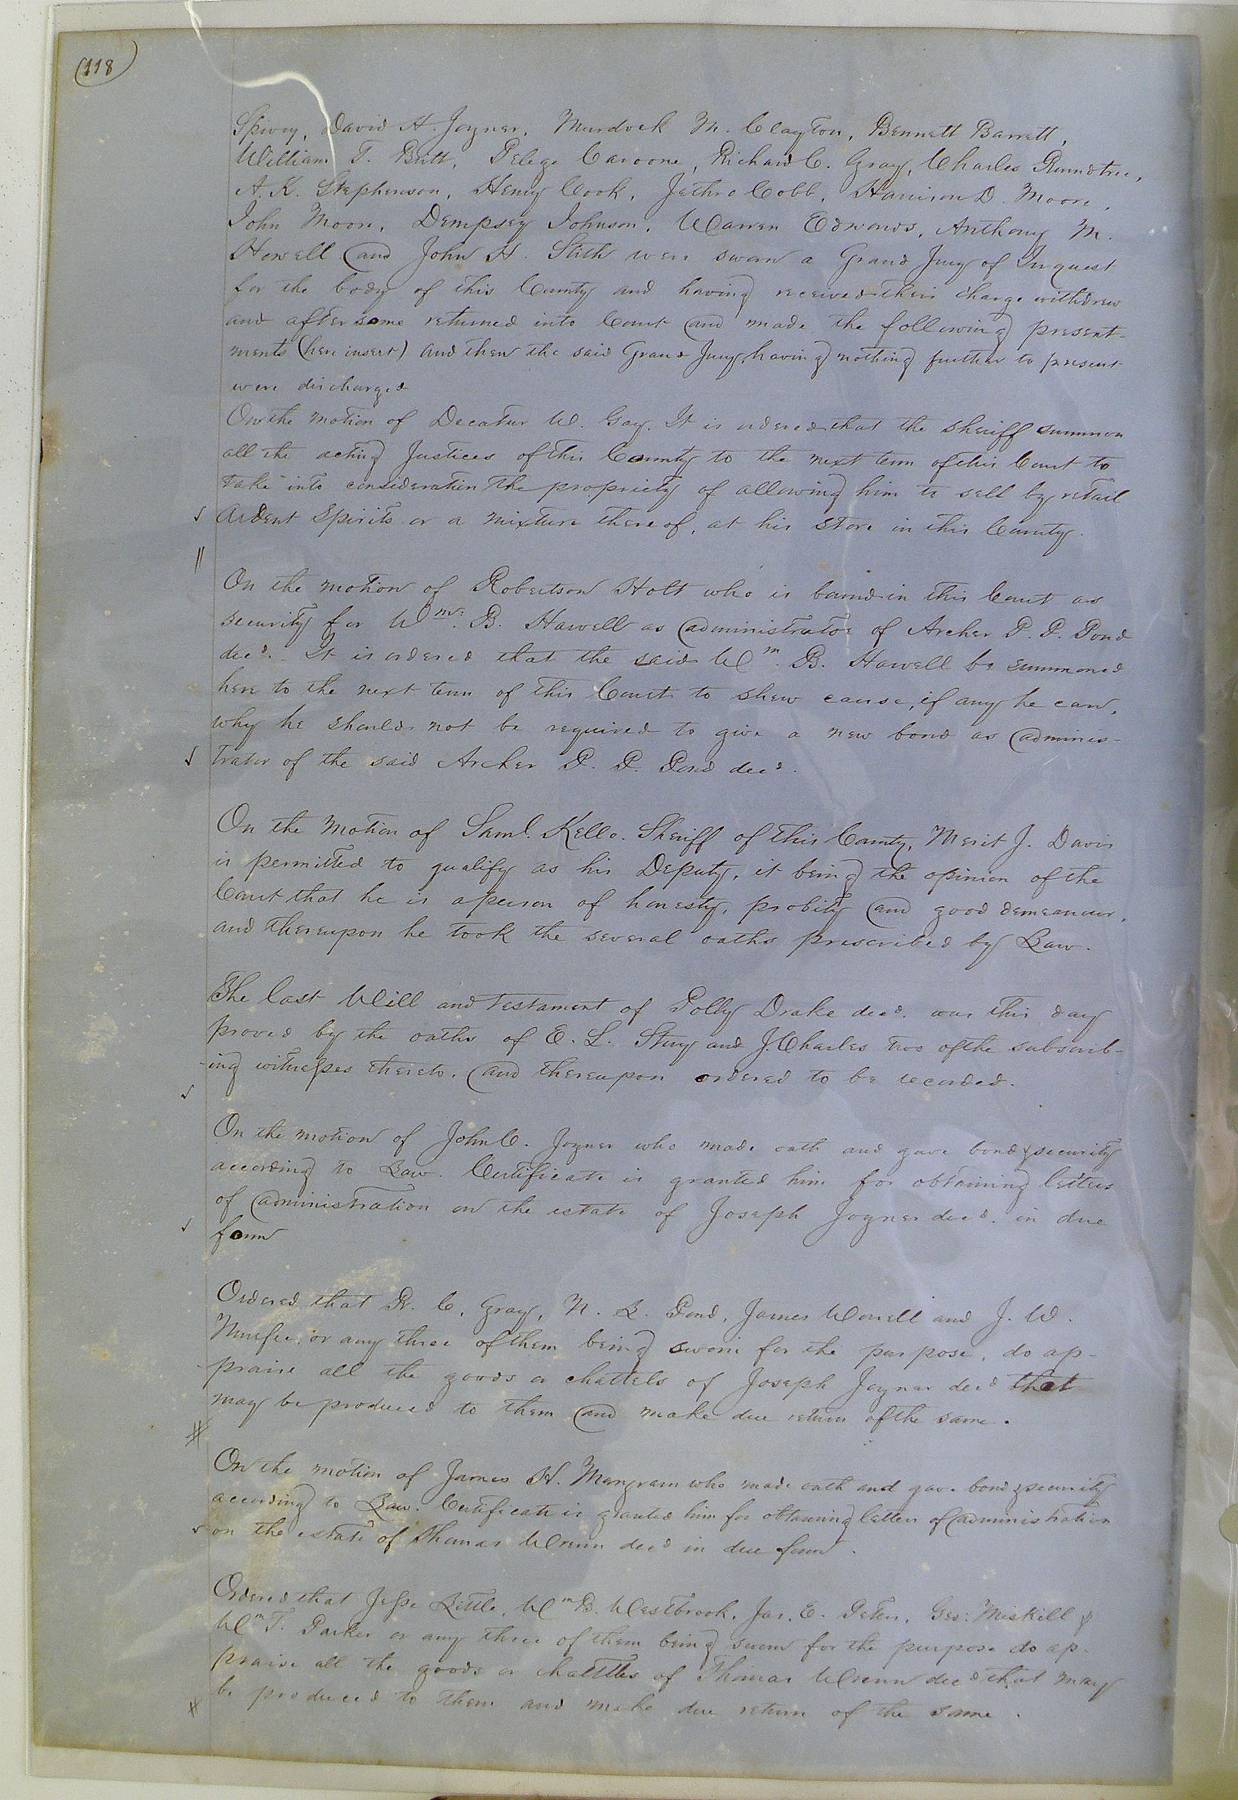 118
Spivey, David A. Joyner, Murdock M. Clayton, Bennett Barrett,
William T. Britt, Pelege Caroone, Richard C. Gray, Charles Roundtree,
A. K. Stephenson, Henry Cook, Jethro Cobb, Harrison D. Moore,
John Moore, Dempsey Johnson, Warren Edwards, Anthony M.
Howell and John H. Stith were sworn a Grand Jury of Inquest
for the body of this County and having received their charge withdrew
and after some returned into Court and made the following present-
ments (here insert) and then the said Grand Jury having nothing further to present
were discharged
On the motion of Decatur W. Gay. It is ordered that the sheriff summon
all the acting Justices of this County to the next term of this Court to
take into consideration the propriety of allowing him to sell by retail
Ardent Spirits or a mixture thereof, at his store in this County.
On the motion of Robertson Holt who is bound in this Court as
security for Wm. B. Howell as administrator of Archer P. P. Pond
decd. It is ordered that the said Wm. B. Howell be summoned
here to the next term of this Court to shew cause, if any he can,
why he should not be required to give a new bond as adminis-
trator of the said Archer P. P. Pond decd.
On the Motion of Saml. Kello. Sheriff of this County, Merit J. Davis
is permitted to qualify as his Deputy, it being the opinion of the
Court that he is a person of honesty, probity and good demeanour,
and thereupon he took the several oaths prescribed by Law.
The last Will and testament of Polly Drake decd. was this day
proved by the oaths of E. L. and J. Charles two of the subscrib-
-ing witnesses thereto. and thereupon ordered to be recorded.
On the motion of John C. Joyner who made oath and gave bond & security
according to Law. Certificate is granted him for obtaining letters
of administration on the estate of Joseph Joyner decd. in due
form
Ordered that R. C. Gray, N. B. Pond, James Worrell and J. W.
Murfee, or any three of them being sworn for the purpose, do ap-
-praise all the goods or chattels of Joseph Joyner decd that
may be produced to them and make due return of the same.
On the motion of James H. Mangram who made oath and gave bond & security
according to Law. Certificate is granted him for obtaining letters of administration
on the estate of Thomas Wrenn decd in due form.
Ordered that Jesse Little, Wm B. Westbrook, Jas. E. Peter, Geo: Miskill &
Wm T. Parker or any three of them being sworn for the purpose do ap-
praise all the goods or chattles of Thomas Wrenn decd that may
be produced to them and make due return of the same.